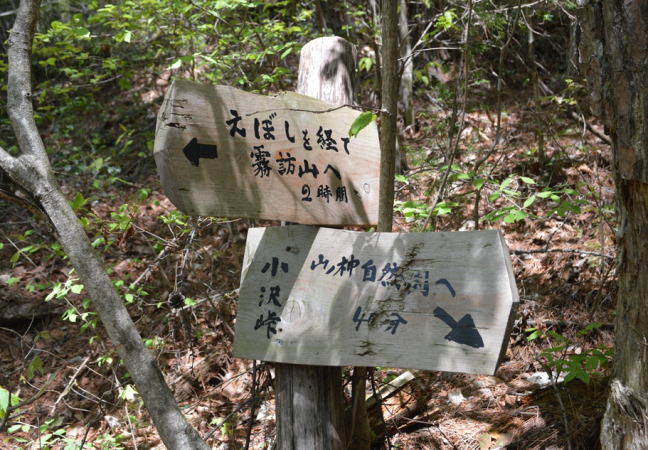 えぼしを経て
霧訪山へ
2時間
小沢峠
山神自然の園へ
40分